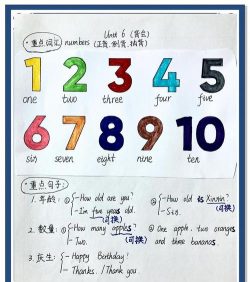 Unit 6
·重点词汇 numbers (正常、倒常、抽常)
1 2 3 4 5
one two three four five
6 7 8 9 10
six seven eight nine ten
·重点句子:
1. 年龄: ①{-How old are you? ②{-How old is Xinxin?
-I'm five years old. (可换) -Six. (可换)
2. 数量: ①{-How many apples? ②One apple, two oranges
-Two. (可换) and three bananas.
3. 庆生: {-Happy Birthday!
-Thanks. / Thank you.